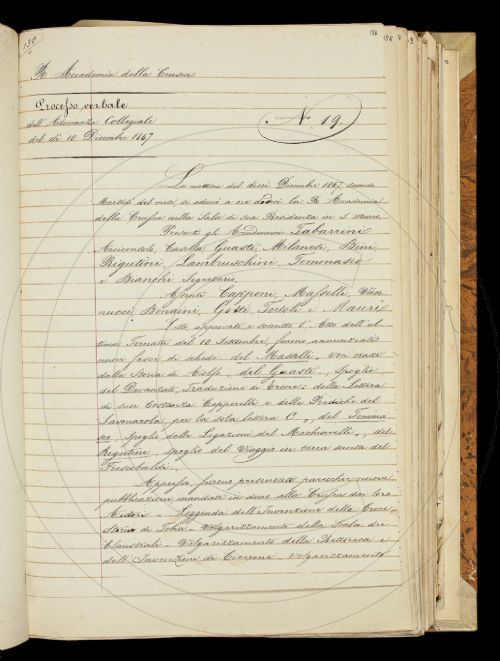 130
R. Accademia della Crusca
Processo verbale
dell'Adunanza Collegiale
del dì 10 Dicembre 1867
N.o 19.
La mattina del dieci Dicembre 1867, secondo
Martedì del mese, si adunò a ore dodici la R. Accademia
della Crusca nella Sala di sua Residenza in S. Marco.
Presenti gli Accademici Tabarrini
Arciconsolo, Casella, Guasti, Milanesi, Bini,
Rigutini, Lambruschini, Tommaseo
e Bianchi Segretario.
Assenti Capponi, Maffei, Van-
nucci, Bonaini, Gotti, Tortoli e Mauri
Letto, approvato e soscritto l'Atto dell'ul-
tima Tornata del 10 Settembre, furono annunziate
nuovi fasci di schede del voci tratte
dalla Storia di del Guasti, spoglio
del Davanzati, Traduzione di della Lettera
di suor Costanza e delle Prediche del
Savonarola, per la sola lettera C, del Tomma-
seo, spoglio delle Legazioni del Machiavelli, del
Rigutini, spoglio del Viaggio in terra santa del
Frescobaldi.
Appresso, furono presentate parecchie nuove
pubblicazioni mandate in dono alla Crusca dai loro
Autori - Leggenda dell'Invenzione della Croce -
Storia di Tobia - Volgarizzamento della Scala dei
Claustrali - Volgarizzamento della Rettorica e
dell'Invenzione di Cicerone - Volgarizzamento